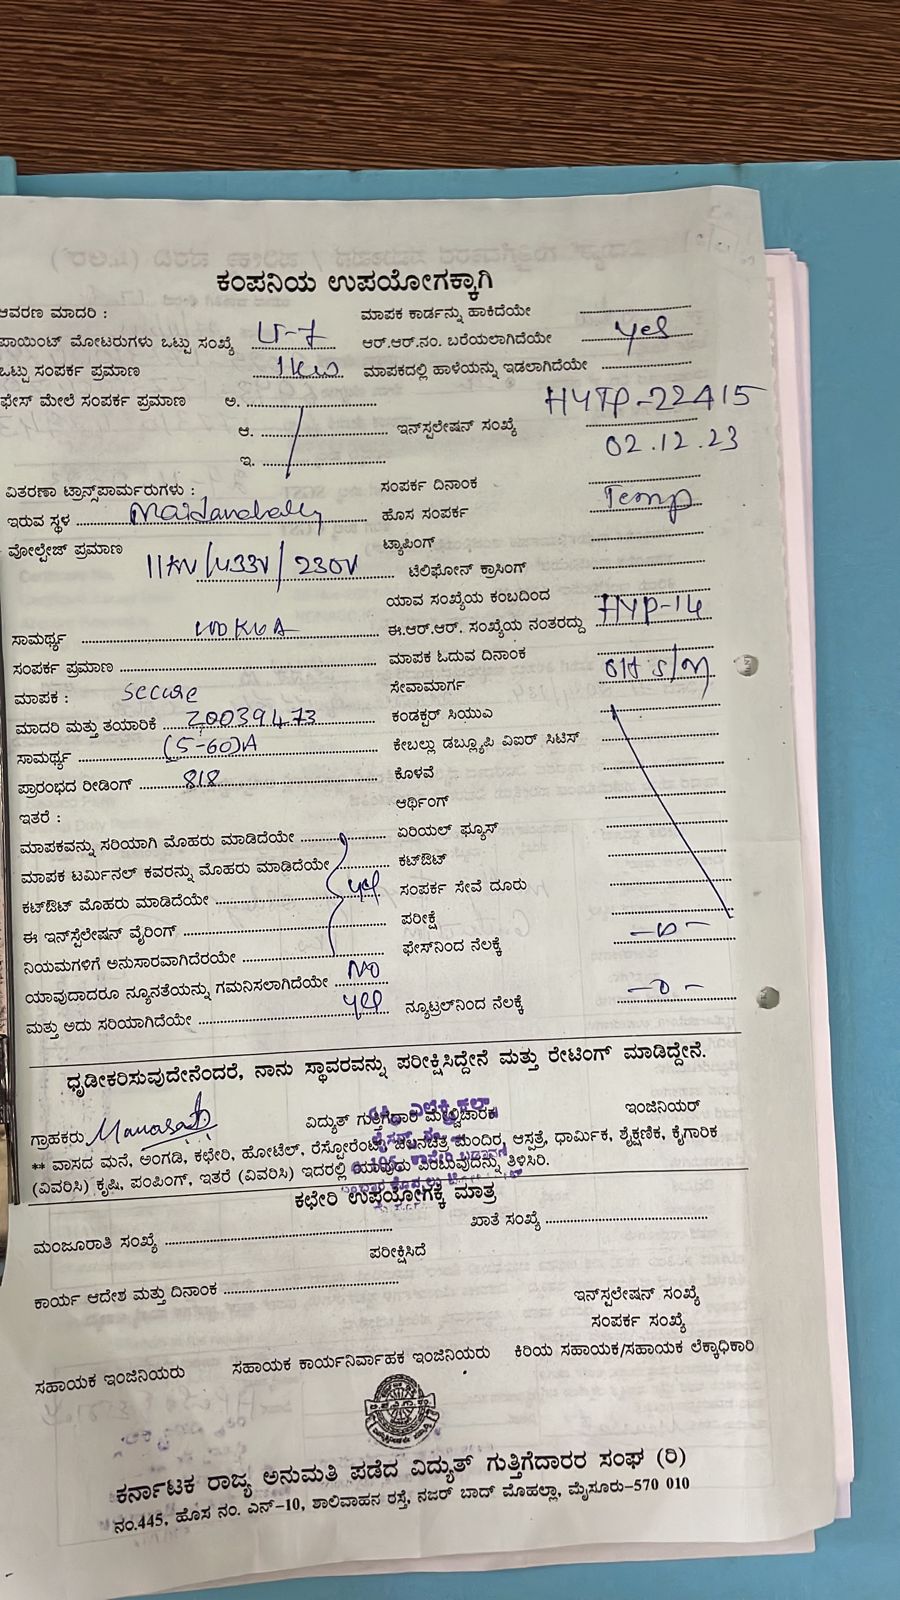 ಕಂಪನಿಯ ಉಪಯೋಗಕ್ಕಾಗಿ
ಆವರಣ ಮಾದರಿ : ಮಾಪಕ ಕಾರ್ಡನ್ನು ಹಾಕಿದೆಯೇ
ಪಾಯಿಂಟ್ ಮೋಟರುಗಳು ಒಟ್ಟು ಸಂಖ್ಯೆ ಆರ್.ಆರ್.ನಂ. ಬರೆಯಲಾಗಿದೆಯೇ Yes
ಒಟ್ಟು ಸಂಪರ್ಕ ಪ್ರಮಾಣ 1KW ಮಾಪಕದಲ್ಲಿ ಹಾಳೆಯನ್ನು ಇಡಲಾಗಿದೆಯೇ
ಫೇಸ್ ಮೇಲೆ ಸಂಪರ್ಕ ಪ್ರಮಾಣ ಅ. HYTP-22415
ಆ. ಇನ್‌ಸ್ಪಲೇಷನ್ ಸಂಖ್ಯೆ 02.12.23
ಇ.
ವಿತರಣಾ ಟ್ರಾನ್ಸ್‌ಫಾರ್ಮರುಗಳು : ಸಂಪರ್ಕ ದಿನಾಂಕ
ಇರುವ ಸ್ಥಳ ಹೊಸ ಸಂಪರ್ಕ Temp
ವೋಲ್ಟೇಜ್ ಪ್ರಮಾಣ 11KV/433V/230V ಟ್ಯಾಪಿಂಗ್
ಟೆಲಿಫೋನ್ ಕ್ರಾಸಿಂಗ್
ಯಾವ ಸಂಖ್ಯೆಯ ಕಂಬದಿಂದ
ಸಾಮರ್ಥ್ಯ ಈ.ಆರ್.ಆರ್. ಸಂಖ್ಯೆಯ ನಂತರದ್ದು HYP-14
ಸಂಪರ್ಕ ಪ್ರಮಾಣ ಮಾಪಕ ಓದುವ ದಿನಾಂಕ
ಮಾಪಕ : Secure ಸೇವಾಮಾರ್ಗ OH S/M
ಮಾದರಿ ಮತ್ತು ತಯಾರಿಕೆ Z0039473 ಕಂಡಕ್ಟರ್ ಸಿಯುವಿ
ಸಾಮರ್ಥ್ಯ (5-60)A ಕೇಬಲ್ಲು ಡಬ್ಲ್ಯೂಪಿ ವಿಐರ್ ಸಿಟಿಸ್
ಪ್ರಾರಂಭದ ರೀಡಿಂಗ್ 818 ಕೊಳವೆ
ಇತರೆ : ಆರ್ಥಿಂಗ್
ಮಾಪಕವನ್ನು ಸರಿಯಾಗಿ ಮೊಹರು ಮಾಡಿದೆಯೇ ಏರಿಯಲ್ ಫ್ಯೂಸ್
ಮಾಪಕ ಟರ್ಮಿನಲ್ ಕವರನ್ನು ಮೊಹರು ಮಾಡಿದೆಯೇ ಕಟ್‌ಔಟ್
ಕಟ್‌ಔಟ್ ಮೊಹರು ಮಾಡಿದೆಯೇ yes ಸಂಪರ್ಕ ಸೇವೆ ದೂರು
ಈ ಇನ್‌ಸ್ಪೆಲೇಷನ್ ವೈರಿಂಗ್ ಪರೀಕ್ಷೆ
ನಿಯಮಗಳಿಗೆ ಅನುಸಾರವಾಗಿದೆರಯೇ ಫೇಸ್‌ನಿಂದ ನೆಲಕ್ಕೆ
ಯಾವುದಾದರೂ ನ್ಯೂನತೆಯನ್ನು ಗಮನಿಸಲಾಗಿದೆಯೇ NO
ಮತ್ತು ಅದು ಸರಿಯಾಗಿದೆಯೇ yes ನ್ಯೂಟ್ರಲ್‌ನಿಂದ ನೆಲಕ್ಕೆ -0-
ಧೃಡೀಕರಿಸುವುದೇನೆಂದರೆ, ನಾನು ಸ್ಥಾವರವನ್ನು ಪರೀಕ್ಷಿಸಿದ್ದೇನೆ ಮತ್ತು ರೇಟಿಂಗ್ ಮಾಡಿದ್ದೇನೆ.
ಗ್ರಾಹಕರು ವಿದ್ಯುತ್ ಗುತ್ತಿಗೆದಾರ ಮೇಲ್ವಿಚಾರಕ ಇಂಜಿನಿಯರ್
** ವಾಸದ ಮನೆ, ಅಂಗಡಿ, ಕಛೇರಿ, ಹೋಟೆಲ್, ರೆಸ್ಟೋರೆಂಟ್, ಚಲನಚಿತ್ರ ಮಂದಿರ, ಆಸ್ಪತ್ರೆ, ಧಾರ್ಮಿಕ, ಶೈಕ್ಷಣಿಕ, ಕೈಗಾರಿಕ
(ವಿವರಿಸಿ) ಕೃಷಿ, ಪಂಪಿಂಗ್, ಇತರೆ (ವಿವರಿಸಿ) ಇದರಲ್ಲಿ ಯಾವುದು ಎಂಬುವುದನ್ನು ತಿಳಿಸಿರಿ.
ಕಛೇರಿ ಉಪಯೋಗಕ್ಕೆ ಮಾತ್ರ
ಮಂಜೂರಾತಿ ಸಂಖ್ಯೆ ಖಾತೆ ಸಂಖ್ಯೆ
ಪರೀಕ್ಷಿಸಿದೆ
ಕಾರ್ಯ ಆದೇಶ ಮತ್ತು ದಿನಾಂಕ
ಇನ್‌ಸ್ಪಲೇಷನ್ ಸಂಖ್ಯೆ
ಸಂಪರ್ಕ ಸಂಖ್ಯೆ
ಸಹಾಯಕ ಇಂಜಿನಿಯರು ಸಹಾಯಕ ಕಾರ್ಯನಿರ್ವಾಹಕ ಇಂಜಿನಿಯರು ಕಿರಿಯ ಸಹಾಯಕ/ಸಹಾಯಕ ಲೆಕ್ಕಾಧಿಕಾರಿ
ಕರ್ನಾಟಕ ರಾಜ್ಯ ಅನುಮತಿ ಪಡೆದ ವಿದ್ಯುತ್ ಗುತ್ತಿಗೆದಾರರ ಸಂಘ (ರಿ)
ನಂ.445, ಹೊಸ ನಂ. ಎನ್-10, ಶಾಲಿವಾಹನ ರಸ್ತೆ, ನಜರ್ ಬಾದ್ ಮೊಹಲ್ಲಾ, ಮೈಸೂರು-570 010